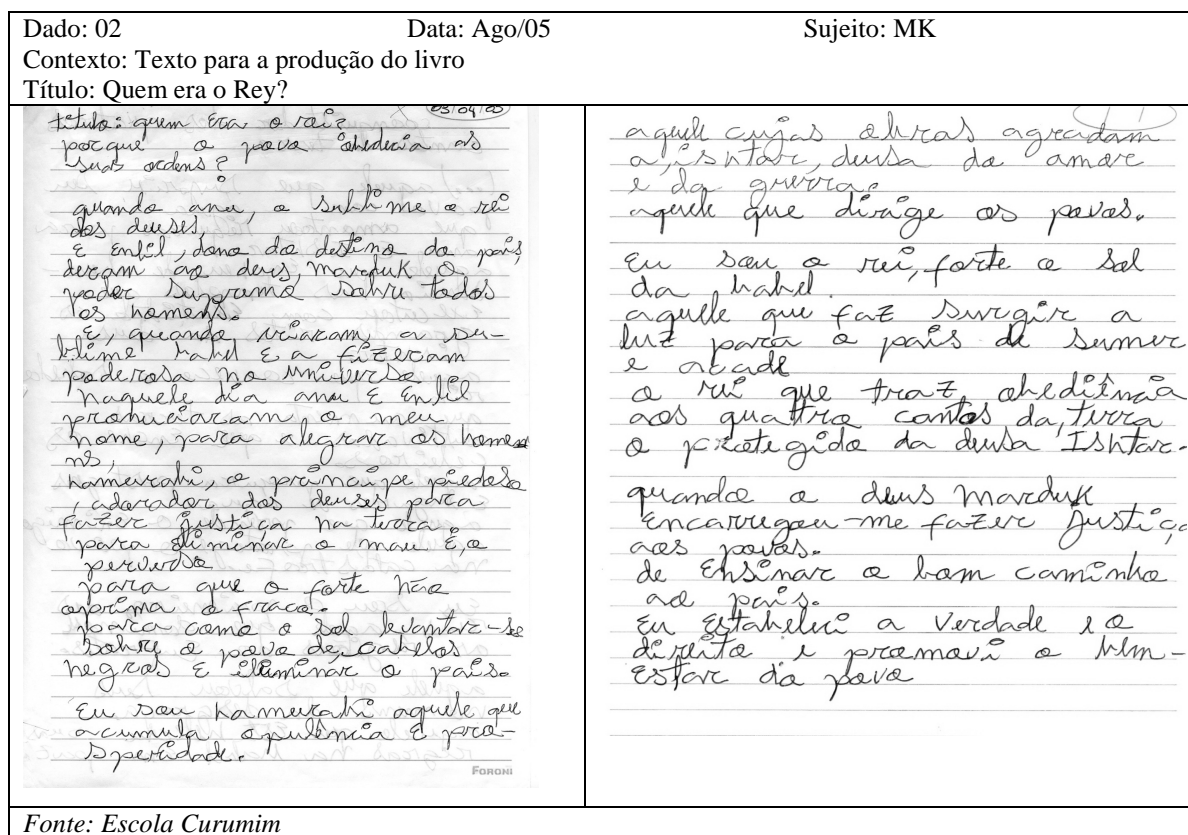 Dado: 02 Data: Ago/05 Sujeito: MK
Contexto: Texto para a produção do livro
Título: Quem era o Rey?
03/04/00
título: quem era o rei?
porque o povo obedecia as
suas ordens?
quando anu, o sublime o rei
dos deuses,
E Enlil, dono do destino do país,
deram ao deus, marduk o
poder supremo sobre todos
os homens.
E, quando criaram, a su-
blime babel E a fizeram
poderosa no universo
naquele dia anu E Enlil
pronunciaram o meu
nome, para alegrar os home
ns,
hamurabi, o príncipe piedoso
, adorador dos deuses para
fazer justiça na terra
para eliminar o mau E, o
perverso
para que o forte não
oprima o fraco.
para como o sol levantar-se
sobre o povo de, cabelos
negros E iluminar o país.
Eu sou hamurabi aquele que
acumula opulência E pro-
speridade.
FORONI
aquele cujas obras agradam
a, ishtar, deusa do amor
e da guerra.
aquele que dirige os povos.
Eu sou o rei, forte o sol
da babel.
aquele que faz surgir a
luz para o país de sumer
e acade
o rei que traz, obediência
aos quattro cantos da, terra
o protegido da deusa Ishtar.
quando o deus marduk
encarregou-me fazer justiça
aos povos.
de Ensinar o bom caminho
ao país.
Eu Estabeleci a verdade e o
direito e promovi o bem-
Estar do povo
Fonte: Escola Curumim